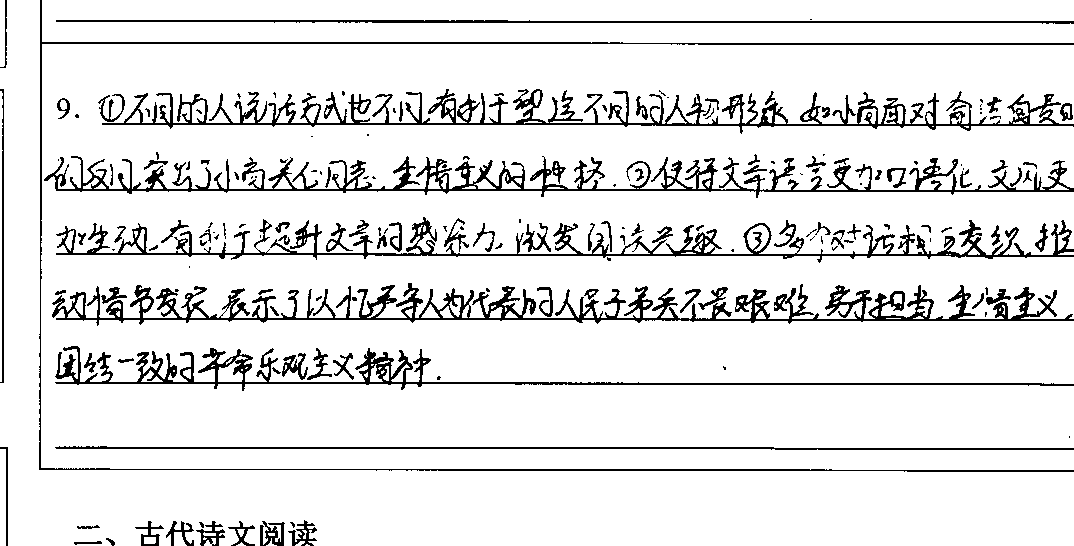 9. ①不同的人说话方式也不同,有利于塑造不同的人物形象,如小商面对
的反问,突出了小商关心同志,重情重义的性格.②使得文章语言更加口语化,文风更
加生动,有利于提升文章的感染力,激发阅读兴趣.③多个对话相互交织,推
动情节发展,表示了以 等人为代表的人民子弟兵不畏艰难,勇于担当,重情重义,
团结一致的革命乐观主义精神.
二、古代诗文阅读